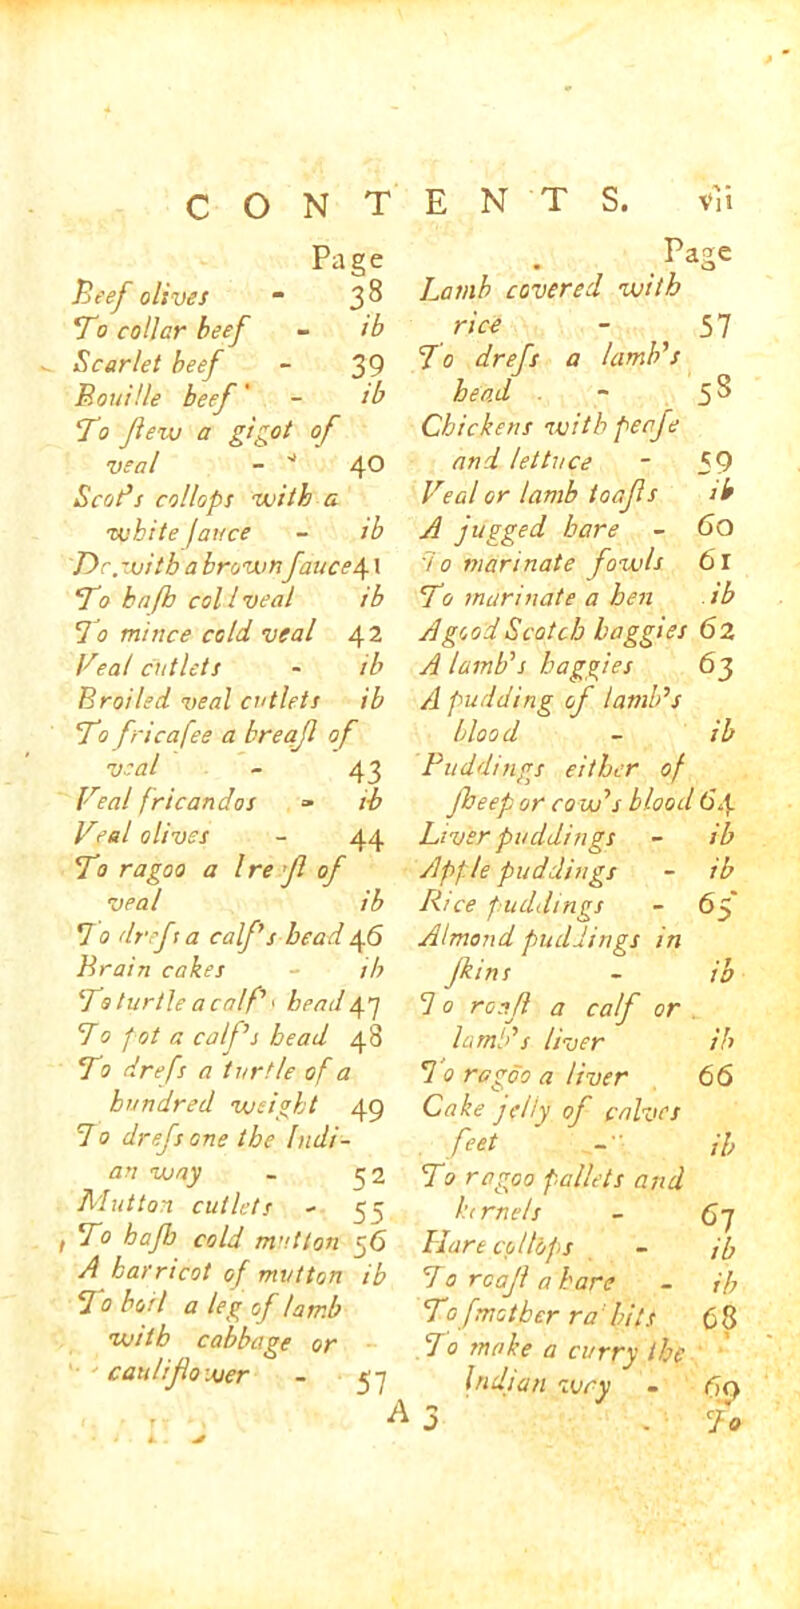 CONTENTS. vii
Page
Beef olives - 38
To collar beef - ib
Scarlet beef - 39
Bouille beef - ib
To ſtew a gigot of
veal - 40
Scot's collops with a
white ſauce - ib
Do. with a brown ſauce 41
To haſh cold veal ib
To mince cold veal 42
Veal cutlets - ib
Broiled veal cutlets ib
To fricaſee a breaſt of
veal - 43
Veal fricandos - ib
Veal olives - 44
To ragoo a breaſt of
veal ib
To dreſs a calf's head 46
Brain cakes - ib
To turtle a calf's head 47
To pot a calf's head 48
To dreſs a turtle of a
hundred weight 49
To dreſs one the Indi-
an way - 52
Mutton cutlets - 55
To haſh cold mutton 56
A harricot of mutton ib
To boil a leg of lamb
with cabbage or
cauliflower - 57
Page
Lamb covered with
rice - 57
To dreſs a lamb's
head - 58
Chickens with peaſe
and lettuce - 59
Veal or lamb toaſts ib
A jugged hare - 60
To marinate fowls 61
To marinate a hen ib
A good Scotch haggies 62
A lamb's haggies 63
A pudding of lamb's
blood - ib
Puddings either of
ſheep or cow's blood 64
Liver puddings - ib
Apple puddings - ib
Rice puddings - 65
Almond puddings in
ſkins - ib
To roaſt a calf or
lamb's liver ib
To ragoo a liver 66
Cake jelly of calves
feet - ib
To ragoo pallets and
kernels - 67
Hare collops - ib
To roaſt a hare - ib
To ſmother rabbits 68
To make a curry the
Indian way - 69
A 3 To